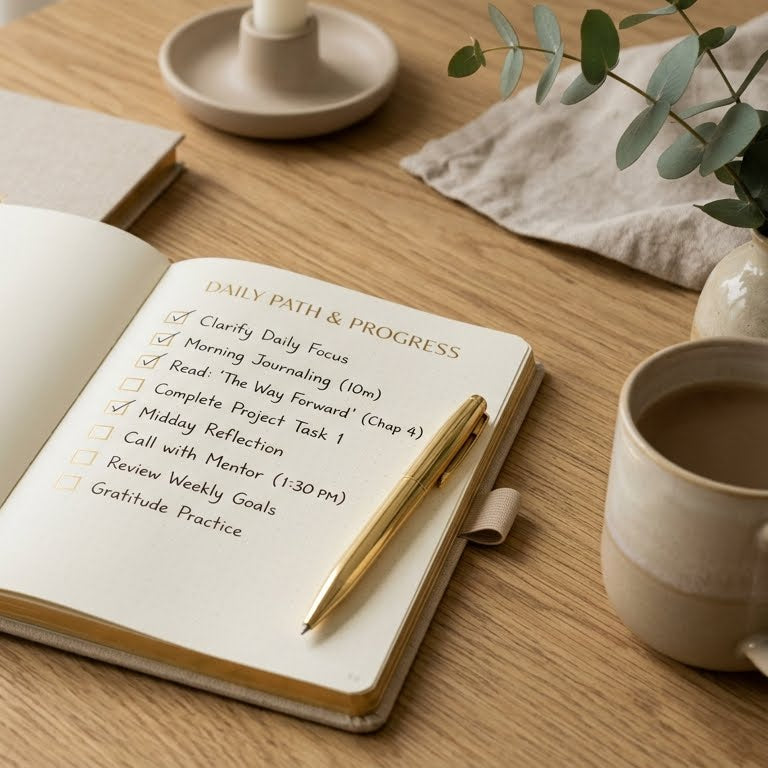 DAILY PATH & PROGRESS
Clarify Daily Focus
Morning Journaling (10m)
Read: 'The Way Forward' (Chap 4)
Complete Project Task 1
Midday Reflection
Call with Mentor (1:30 PM)
Review Weekly Goals
Gratitude Practice